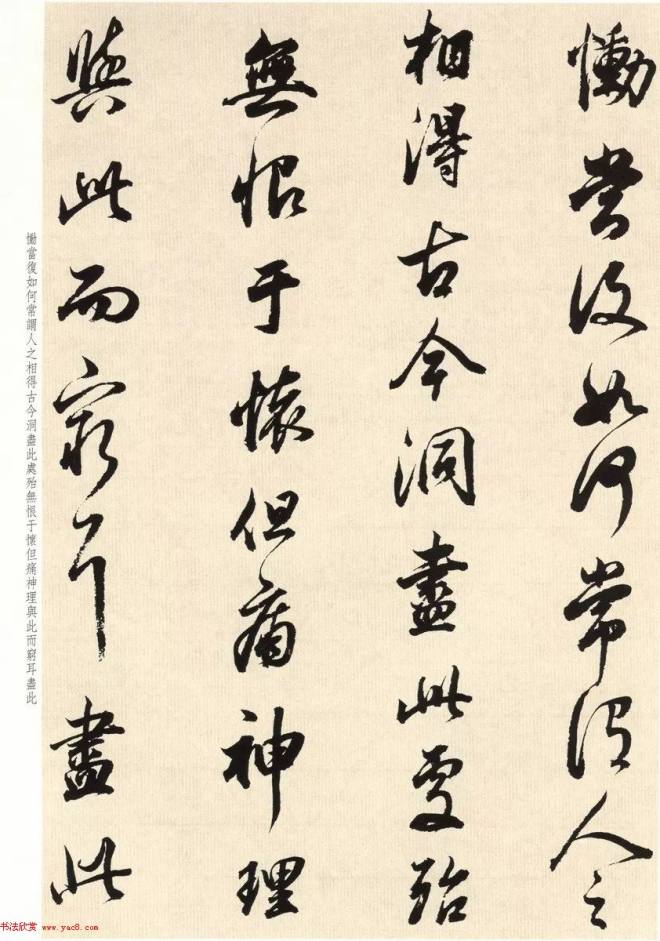 慟當復如何常謂人之
相得古今洞盡此處殆
無恨于懷但痛神理
與此而窮耳盡此
慟當復如何常謂人之相得古今洞盡此處殆無恨于懷但痛神理與此而窮耳盡此
书法欣赏 www.yac8.com